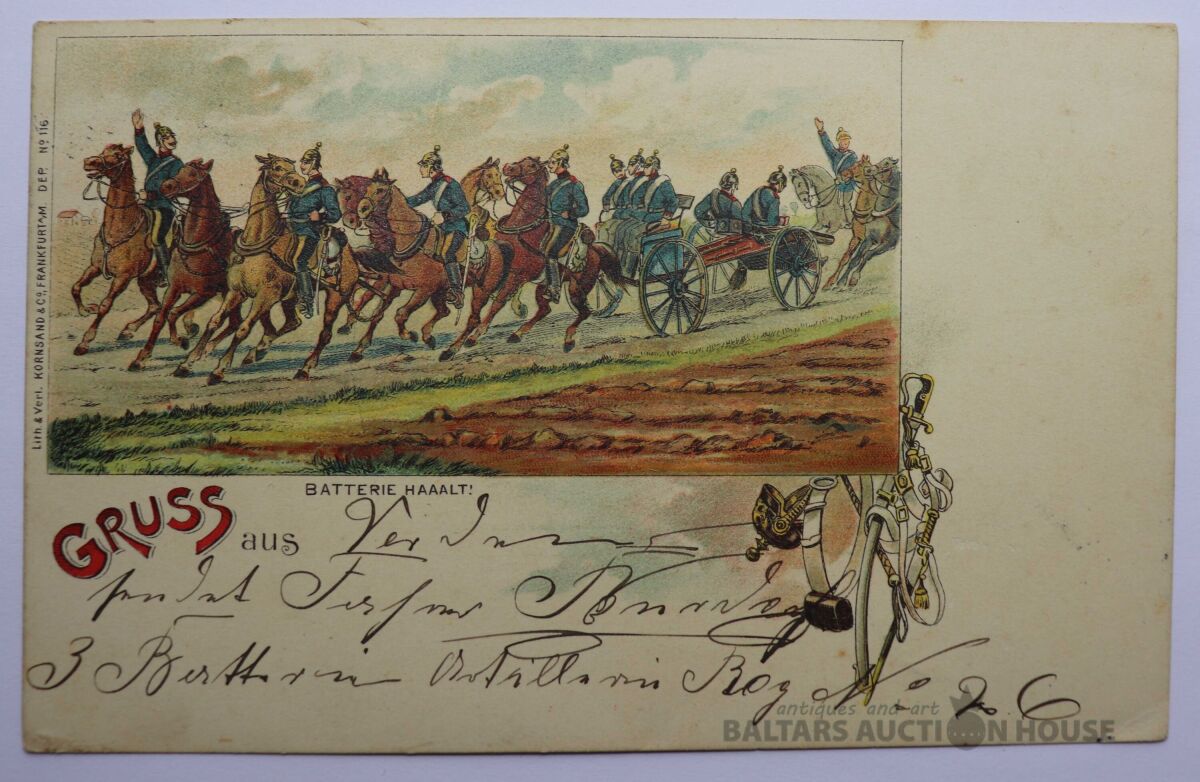 Lith & Verl. KORNSAND & Co, FRANKFURT A/M. DEP. No 116
BATTERIE HAAALT!
GRUSS aus Verden
sendet
3 Batterie Artillerie Reg No 26
antiques and art
BALTARS AUCTION HOUSE